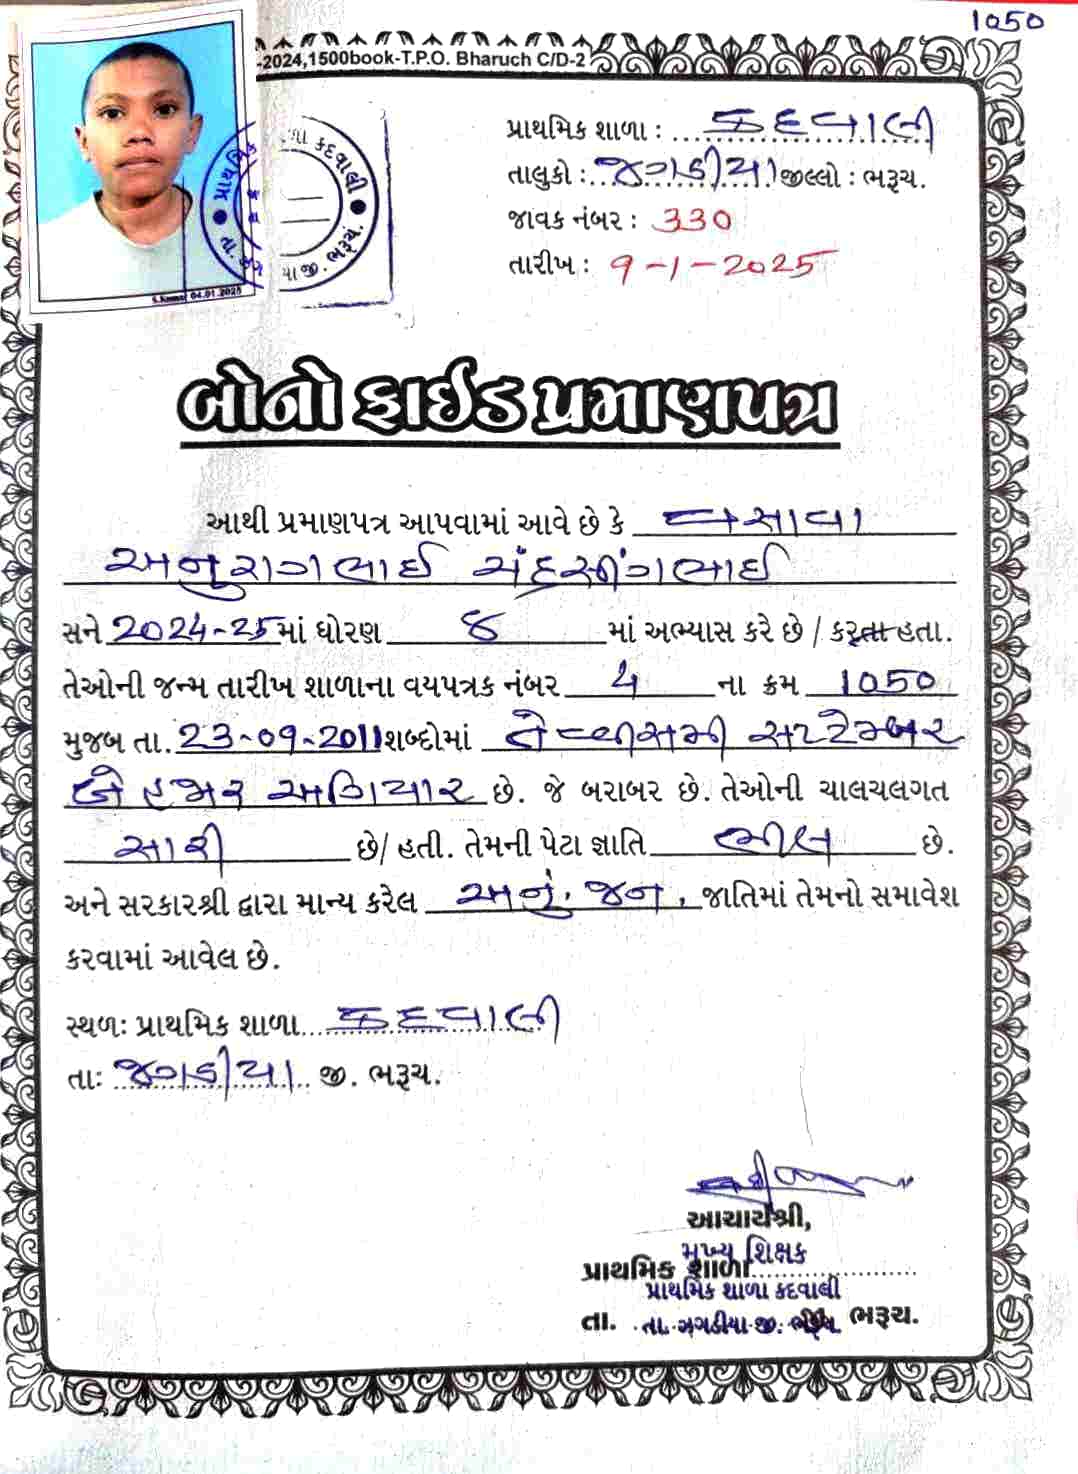 1050
-2024,1500book-T.P.O. Bharuch C/D-2
પ્રાથમિક શાળા : કદવાલી
તાલુકો : ઝગડીયા જીલ્લો : ભરૂચ.
જાવક નંબર : 330
તારીખ : 9-1-2025
04.01.2025
બોનોફાઈડ પ્રમાણપત્ર
આથી પ્રમાણપત્ર આપવામાં આવે છે કે વસાવા
અનુરાગભાઈ ચંદુસીંગભાઈ
સને 2024-25માં ધોરણ 8 માં અભ્યાસ કરે છે / કરતા હતા.
તેઓની જન્મ તારીખ શાળાના વયપત્રક નંબર 4 ના ક્રમ 1050
મુજબ તા. 23-09-2011 શબ્દોમાં ત્રેવીસમી સપ્ટેમ્બર
બે હજાર અગિયાર છે. જે બરાબર છે. તેઓની ચાલચલગત
સારી છે/ હતી. તેમની પેટા જ્ઞાતિ ભીલ છે.
અને સરકારશ્રી દ્વારા માન્ય કરેલ અનુ. જન. જાતિમાં તેમનો સમાવેશ
કરવામાં આવેલ છે.
સ્થળઃ પ્રાથમિક શાળા કદવાલી
તાઃ ઝગડીયા જી. ભરૂચ.
આચાર્યશ્રી,
મુખ્ય શિક્ષક
પ્રાથમિક શાળા
પ્રાથમિક શાળા કદવાલી
તા. તા. ઝગડીયા જી. ભરૂચ જી. ભરૂચ.